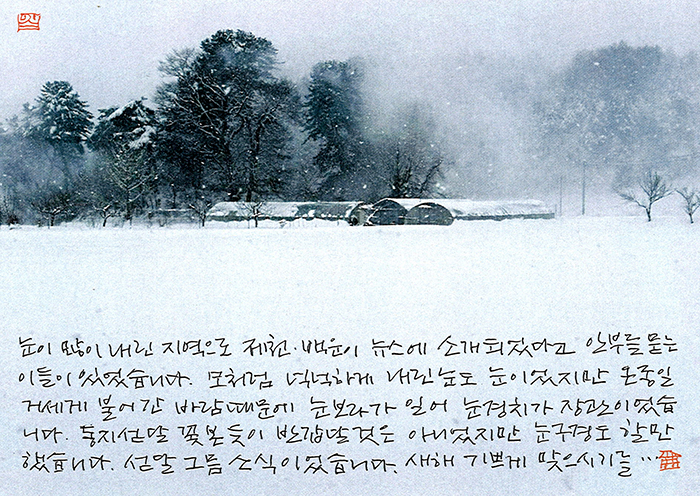 눈이 많이 내린 지역으로 제천·백운이 뉴스에 소개되었다고 안부를 묻는
이들이 있었습니다. 모처럼 넉넉하게 내린 눈도 눈이었지만 온종일
거세게 불어간 바람때문에 눈보라가 일어 눈경치가 장관이었습
니다. 동지섣달 꽃본듯이 반갑달 것은 아니었지만 눈구경도 할만
했습니다. 섣달 그믐 소식이었습니다. 새해 기쁘게 맞으시기를 …